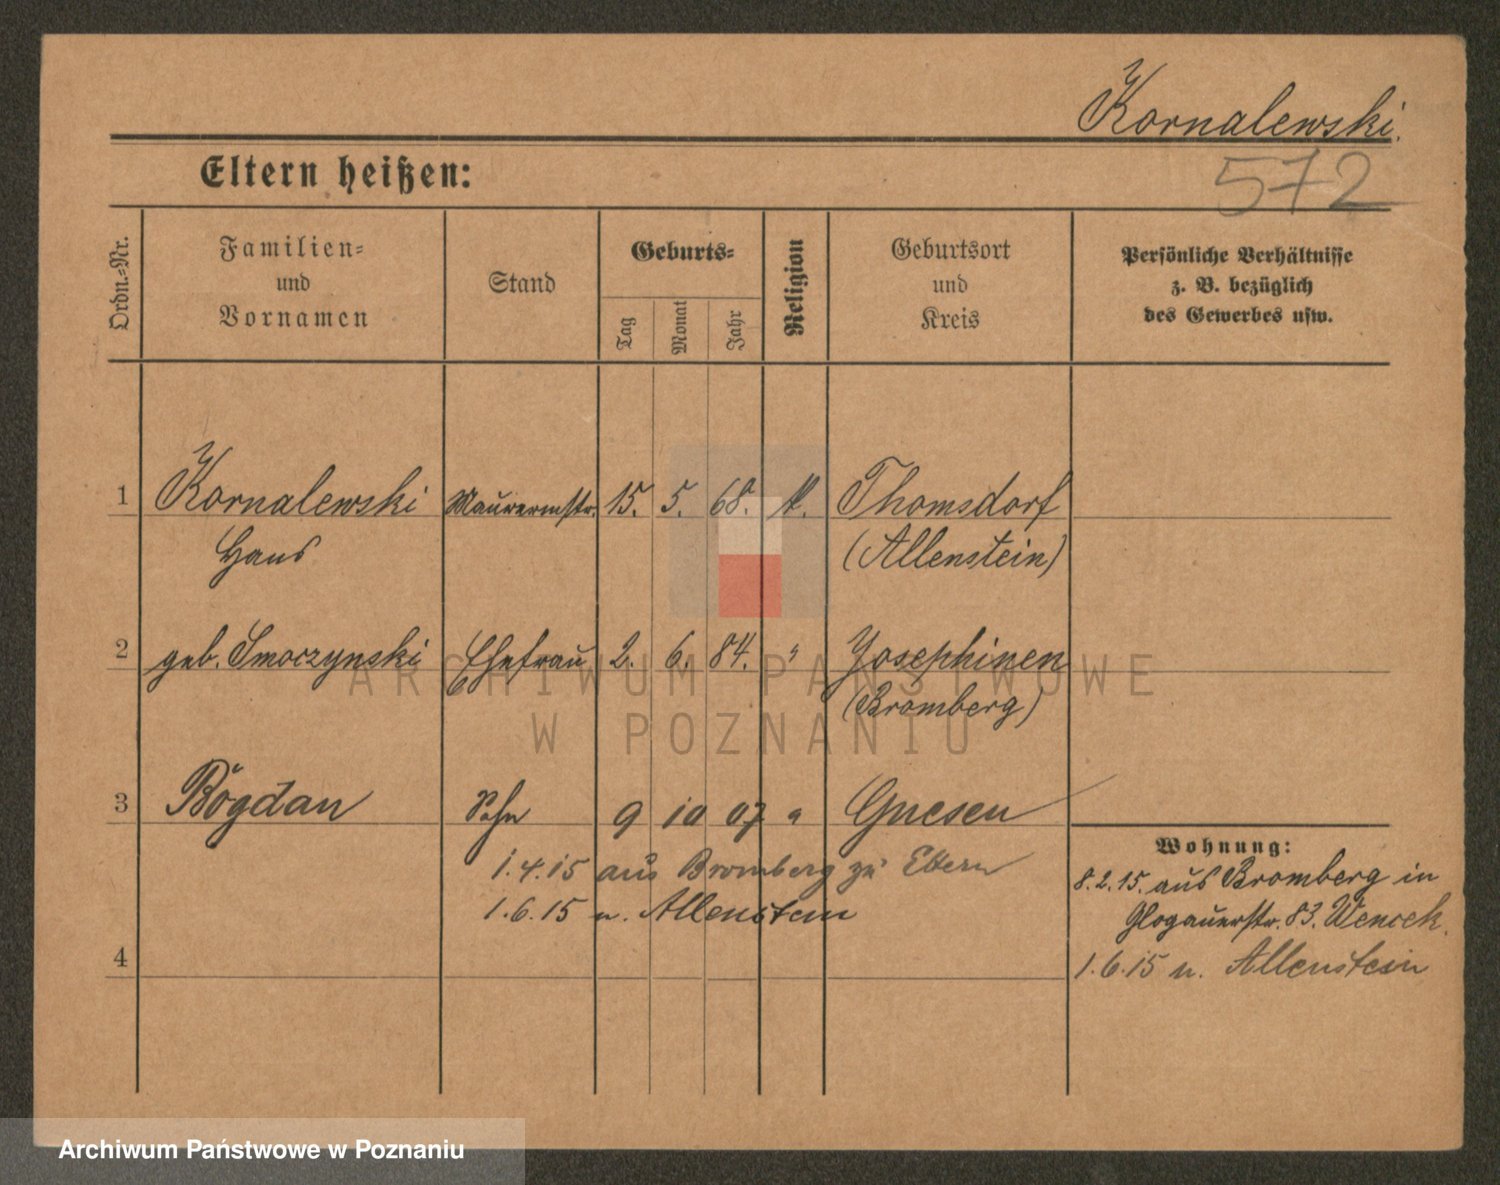 Kornalewski.
572
Eltern heißen:
Ordn.-Nr.
Familien-
und
Vornamen
Stand
Geburts-
Tag
Monat
Jahr
Religion
Geburtsort
und
Kreis
Persönliche Verhältnisse
z. B. bezüglich
des Gewerbes usw.
1 Kornalewski Maurermstr. 15. 5. 68. k. Thomsdorf
Hans (Allenstein)
2 geb. Smoczynski Ehefrau 2. 6. 84. " Josephinen
(Bromberg)
3 Bogdan Sohn 9 10 07 " Gnesen
1.4.15 aus Bromberg zu Eltern
1.6.15 n. Allenstein
4
Wohnung:
8.2.15. aus Bromberg in
Glogauerstr. 83. Wencek.
1.6.15 n. Allenstein
ARCHIWUM PAŃSTWOWE
W POZNANIU
Archiwum Państwowe w Poznaniu